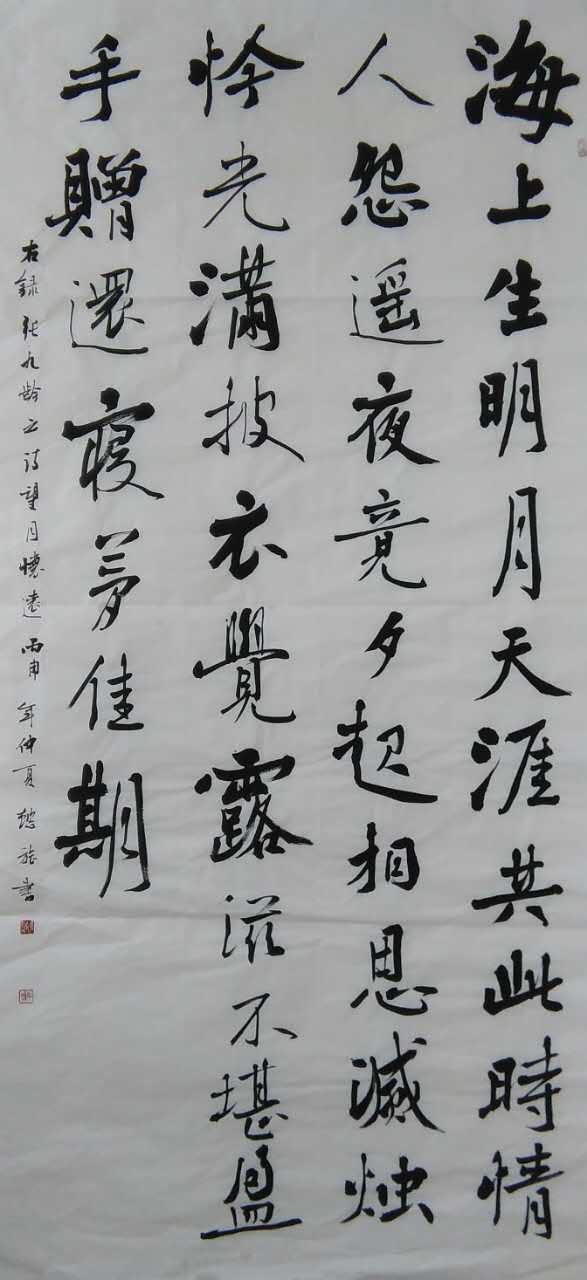 海上生明月天涯共此時情
人怨遥夜竟夕起相思滅烛
怜光滿披衣覺露滋不堪盈
手贈還寢夢佳期
右録張九齡之詩望月懷遠 丙申年仲夏 書